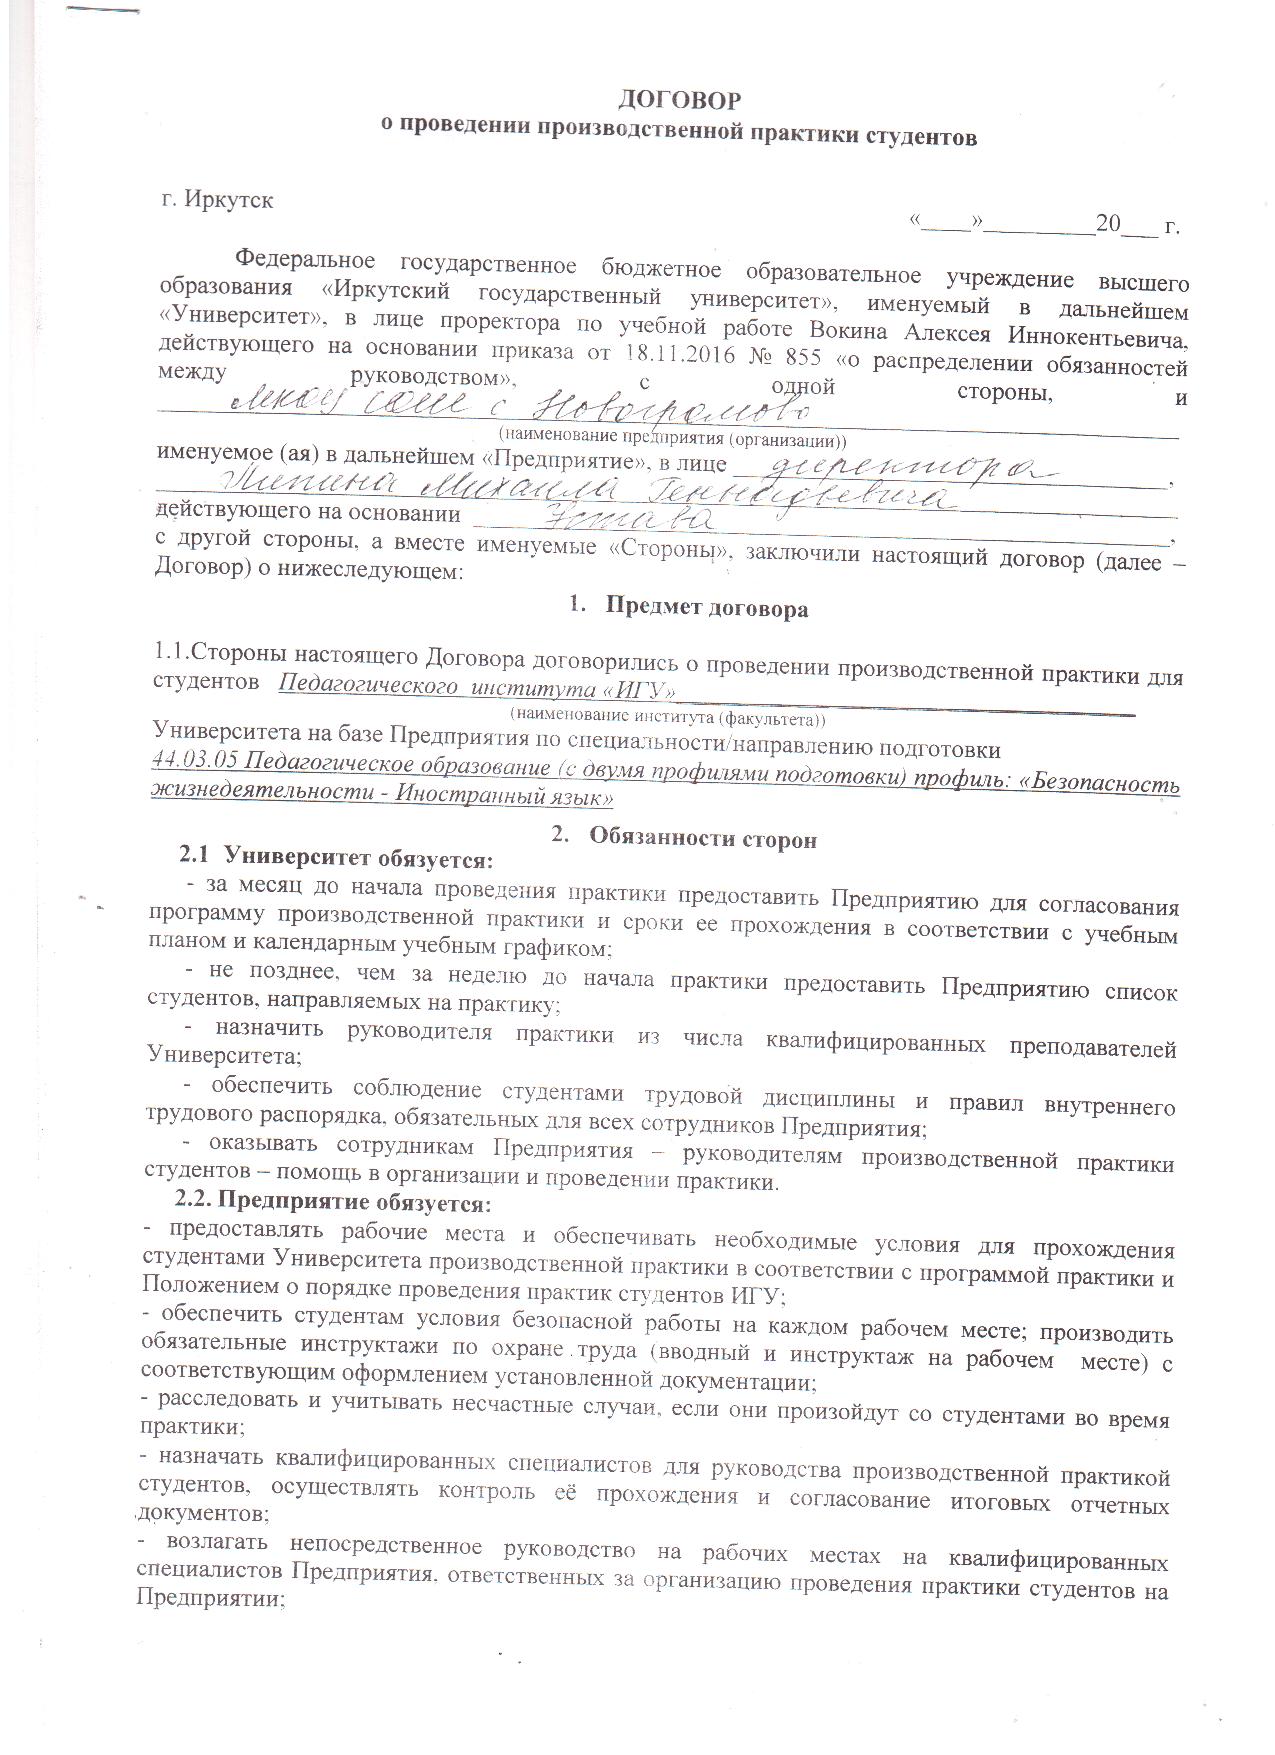 ДОГОВОР
о проведении производственной практики студентов
г. Иркутск
«____»_________20___ г.
Федеральное государственное бюджетное образовательное учреждение высшего
образования «Иркутский государственный университет», именуемый в дальнейшем
«Университет», в лице проректора по учебной работе Вокина Алексея Иннокентьевича,
действующего на основании приказа от 18.11.2016 № 855 «о распределении обязанностей
между руководством», с одной стороны, и
МКОУ СОШ с Новогромово
(наименование предприятия (организации))
именуемое (ая) в дальнейшем «Предприятие», в лице директора,
Михаила Геннадьевича
действующего на основании Устава,
с другой стороны, а вместе именуемые «Стороны», заключили настоящий договор (далее –
Договор) о нижеследующем:
1. Предмет договора
1.1.Стороны настоящего Договора договорились о проведении производственной практики для
студентов Педагогического института «ИГУ»
(наименование института (факультета))
Университета на базе Предприятия по специальности/направлению подготовки
44.03.05 Педагогическое образование (с двумя профилями подготовки) профиль: «Безопасность
жизнедеятельности - Иностранный язык»
2. Обязанности сторон
2.1 Университет обязуется:
- за месяц до начала проведения практики предоставить Предприятию для согласования
программу производственной практики и сроки ее прохождения в соответствии с учебным
планом и календарным учебным графиком;
- не позднее, чем за неделю до начала практики предоставить Предприятию список
студентов, направляемых на практику;
- назначить руководителя практики из числа квалифицированных преподавателей
Университета;
- обеспечить соблюдение студентами трудовой дисциплины и правил внутреннего
трудового распорядка, обязательных для всех сотрудников Предприятия;
- оказывать сотрудникам Предприятия – руководителям производственной практики
студентов – помощь в организации и проведении практики.
2.2. Предприятие обязуется:
- предоставлять рабочие места и обеспечивать необходимые условия для прохождения
студентами Университета производственной практики в соответствии с программой практики и
Положением о порядке проведения практик студентов ИГУ;
- обеспечить студентам условия безопасной работы на каждом рабочем месте; производить
обязательные инструктажи по охране труда (вводный и инструктаж на рабочем месте) с
соответствующим оформлением установленной документации;
- расследовать и учитывать несчастные случаи, если они произойдут со студентами во время
практики;
- назначать квалифицированных специалистов для руководства производственной практикой
студентов, осуществлять контроль её прохождения и согласование итоговых отчетных
документов;
- возлагать непосредственное руководство на рабочих местах на квалифицированных
специалистов Предприятия, ответственных за организацию проведения практики студентов на
Предприятии;